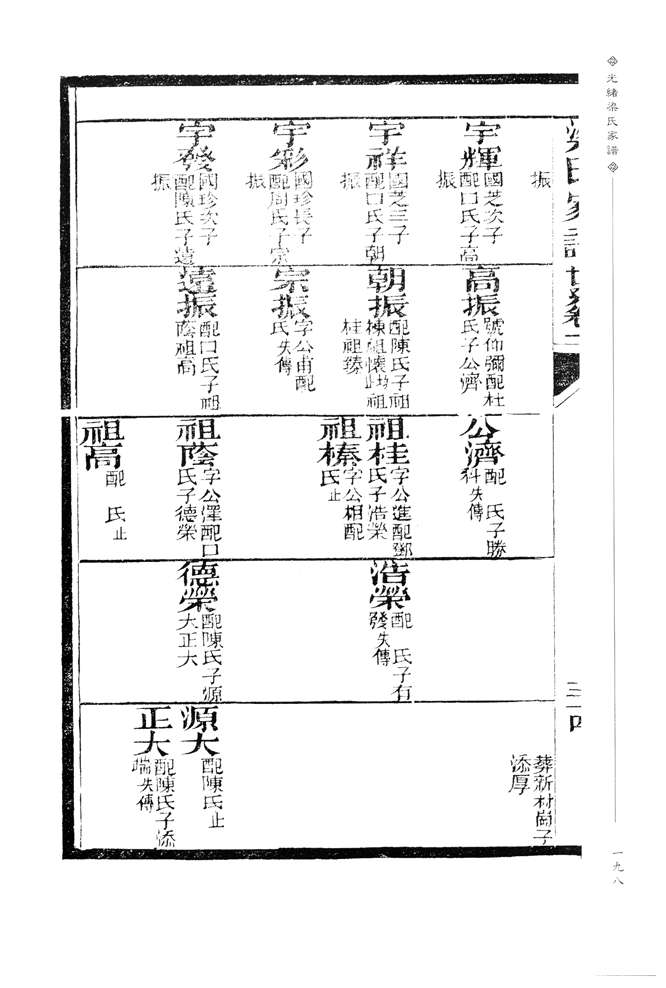 光緒梁氏家譜
一九八
梁氏家譜世系卷二
三十四
振
宇輝
國芝次子
配口氏子高
振
宇祥
國芝三子
配口氏子朝
振
宇彩
國珍長子
配周氏子宗
振
宇發
國珍次子
配陳氏子遠
振
高振
號仰彌配杜
氏子公濟
朝振
配陳氏子祖
桂祖榛
宗振
字公甫配
氏失傳
遠振
配口氏子祖
蔭祖高
公濟
配 氏子勝
科失傳
祖桂
字公進配鄧
氏子浩榮
祖榛
字公相配
氏止
祖蔭
字公澤配口
氏子德榮
祖高
配 氏止
浩榮
配 氏子有
發失傳
德榮
配陳氏子源
大正大
葬新村崗子
添厚
源大
配陳氏止
正大
配陳氏子添
端失傳